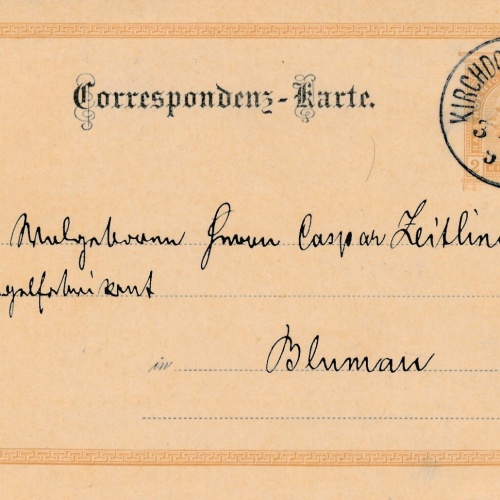 Correspondenz-Karte.
KIRCHDO
2
Wolgeboren Herrn Caspar Zeitlin
gelfabrikant
in Blumau